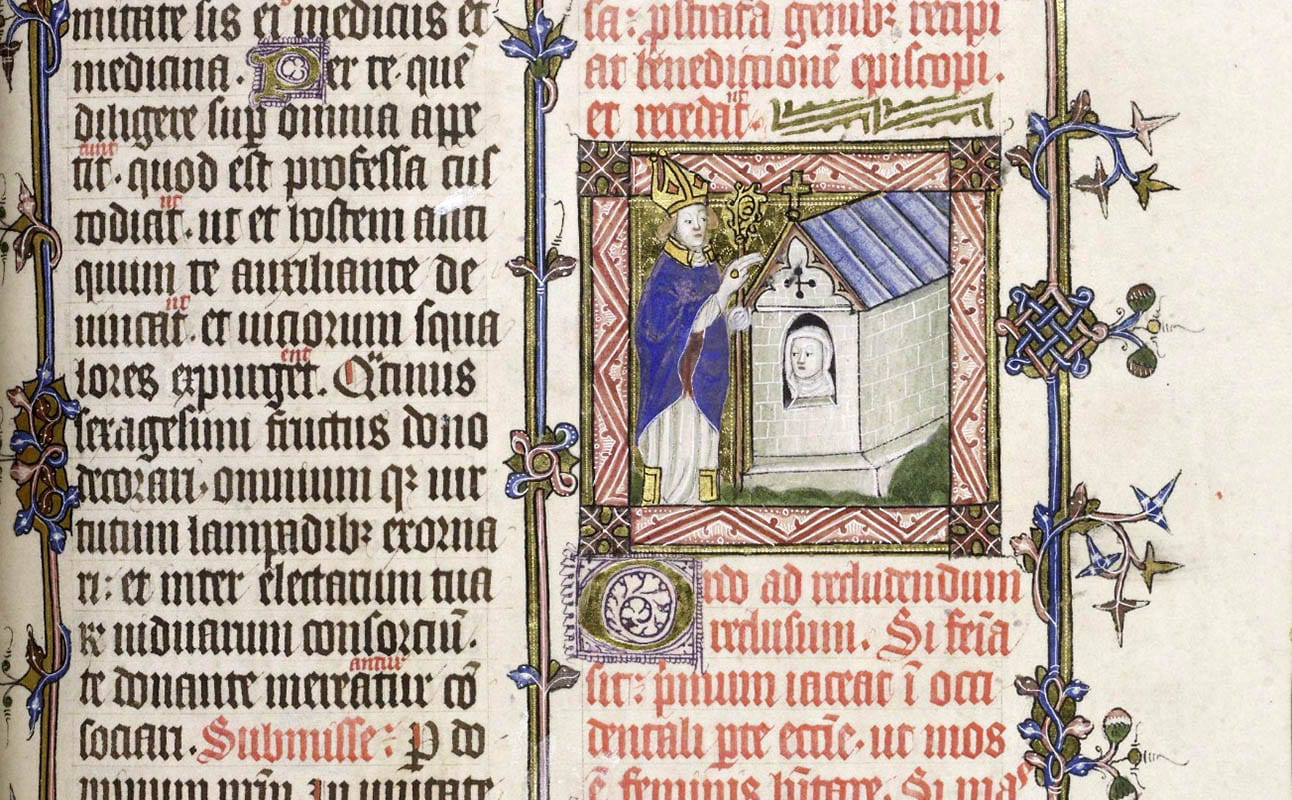 mitate sis ei medicus et
medicina. Per te quē
diligere sup omnia appe
tit. quod est professa cus
todiat. ut et hostem anti
quum te auxiliante de
uincat. et uiciorum squa
lores expurget. Qͣtinus
sexagesimi fructus dono
decorari. omnium qꝫ uir
tutum lampadibꝫ exorna
ri: et inter electarum tua
rꝫ uiduarum consorciū.
te donante mereatur cō
sociari. Submisse: P do
minum nrm. In unitate
sa: pstrata genibꝫ recipi
at benedictionē episcopi.
et recedat.
Ordo ad recludendum
reclusum. Si feīa
sit: pmum iaceat ī occi
dentali pte eccīe. ut mos
ē feminis hītare. Si maˢ